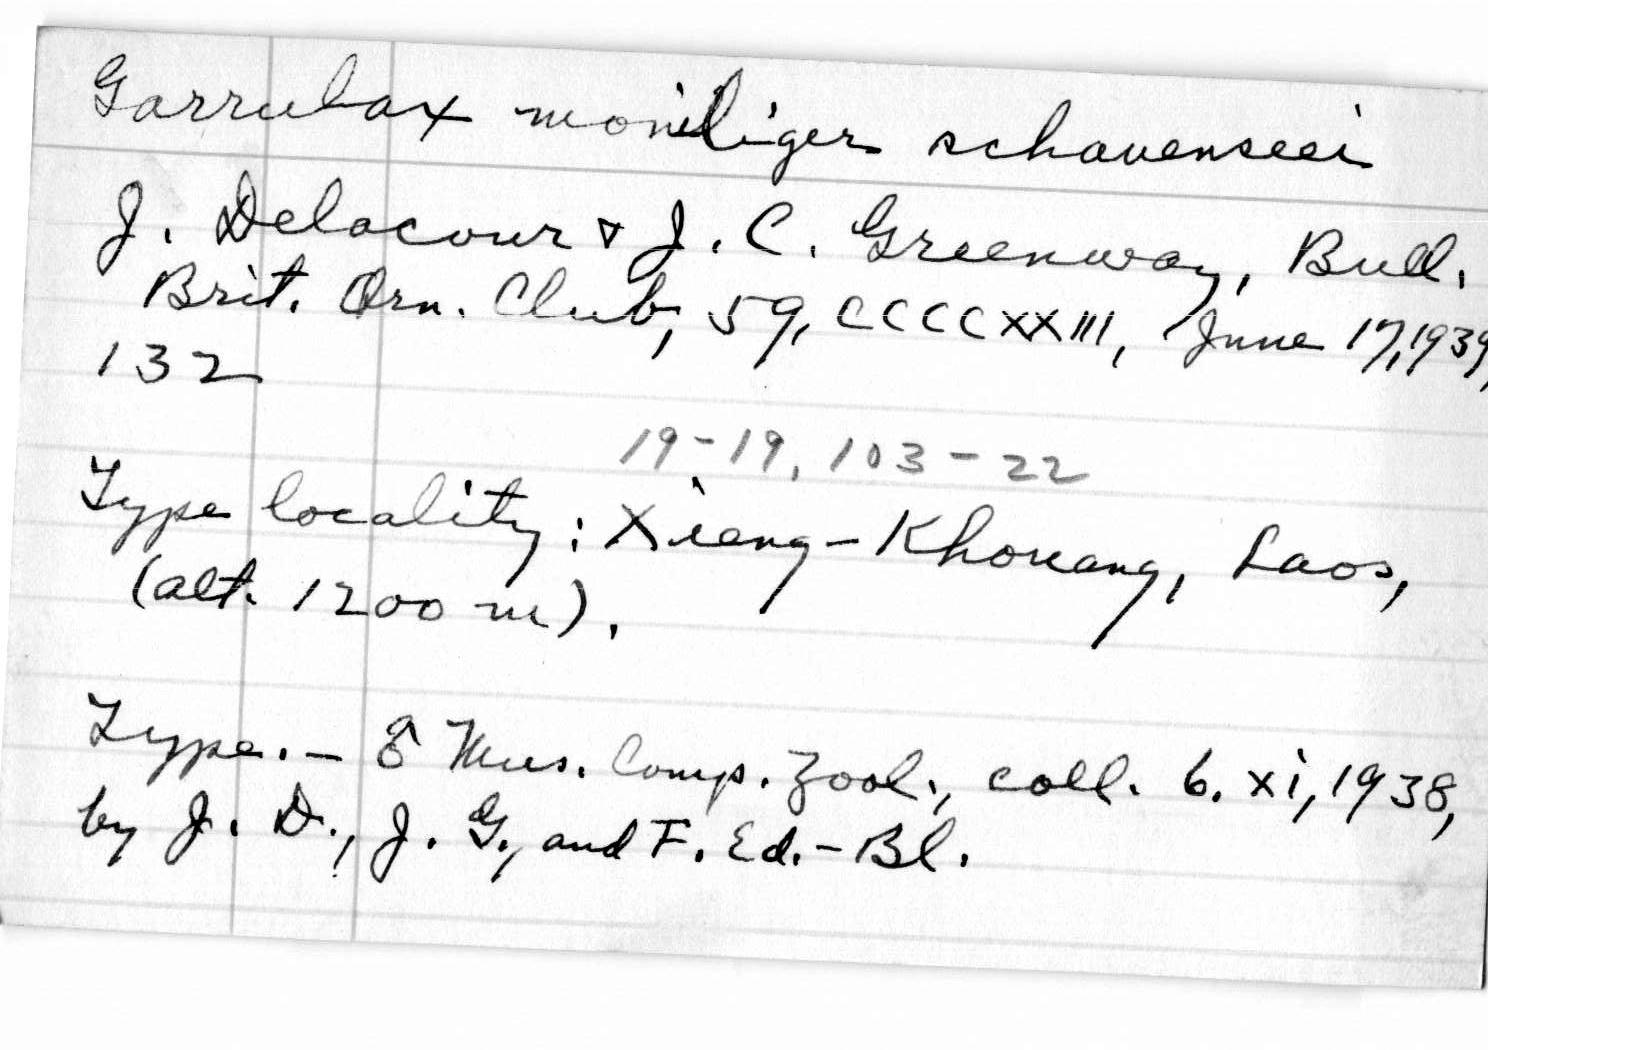 Garrulax moniliger schauenseei
J. Delacour & J. C. Greenway, Bull.
Brit. Orn. Club, 59, CCCCXXIII, June 17, 1939,
132
19-19, 103-22
Type locality: Xieng-Khouang, Laos,
(alt. 1200 m).
Type. - ♂ Mus. Comp. Zool., coll. 6. xi, 1938,
by J. D., J. G., and F. Ed.-Bl.